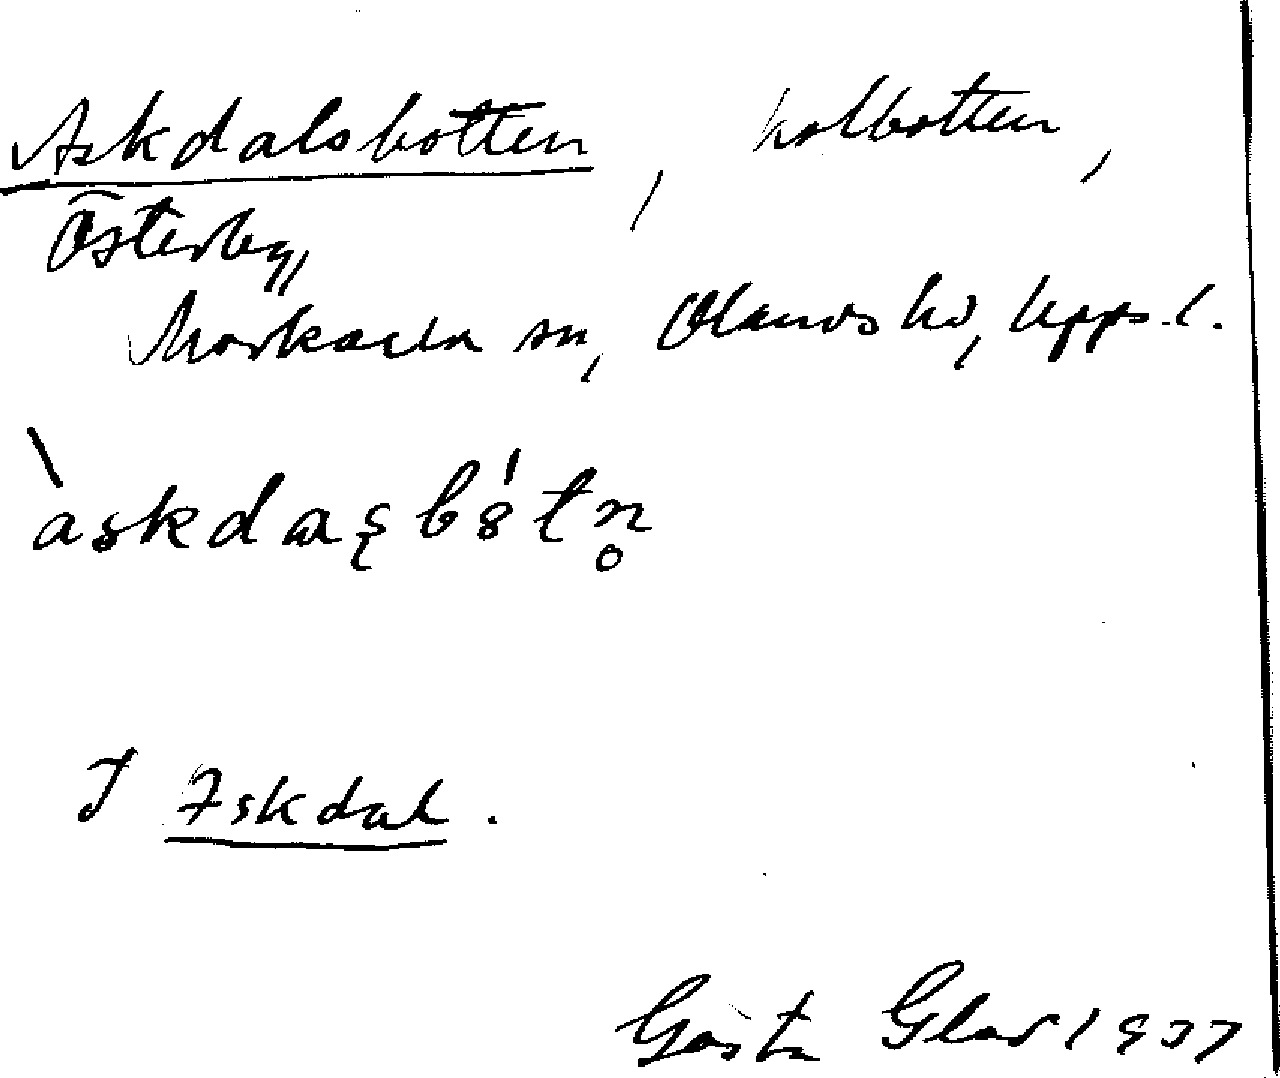 Askdalsbotten, kolbotten,
Österby,
Morkarla sn, Olands hd, Upps.l.
àskdaʂb8́tn̥
I Iskdal.
Gösta Glad 1937